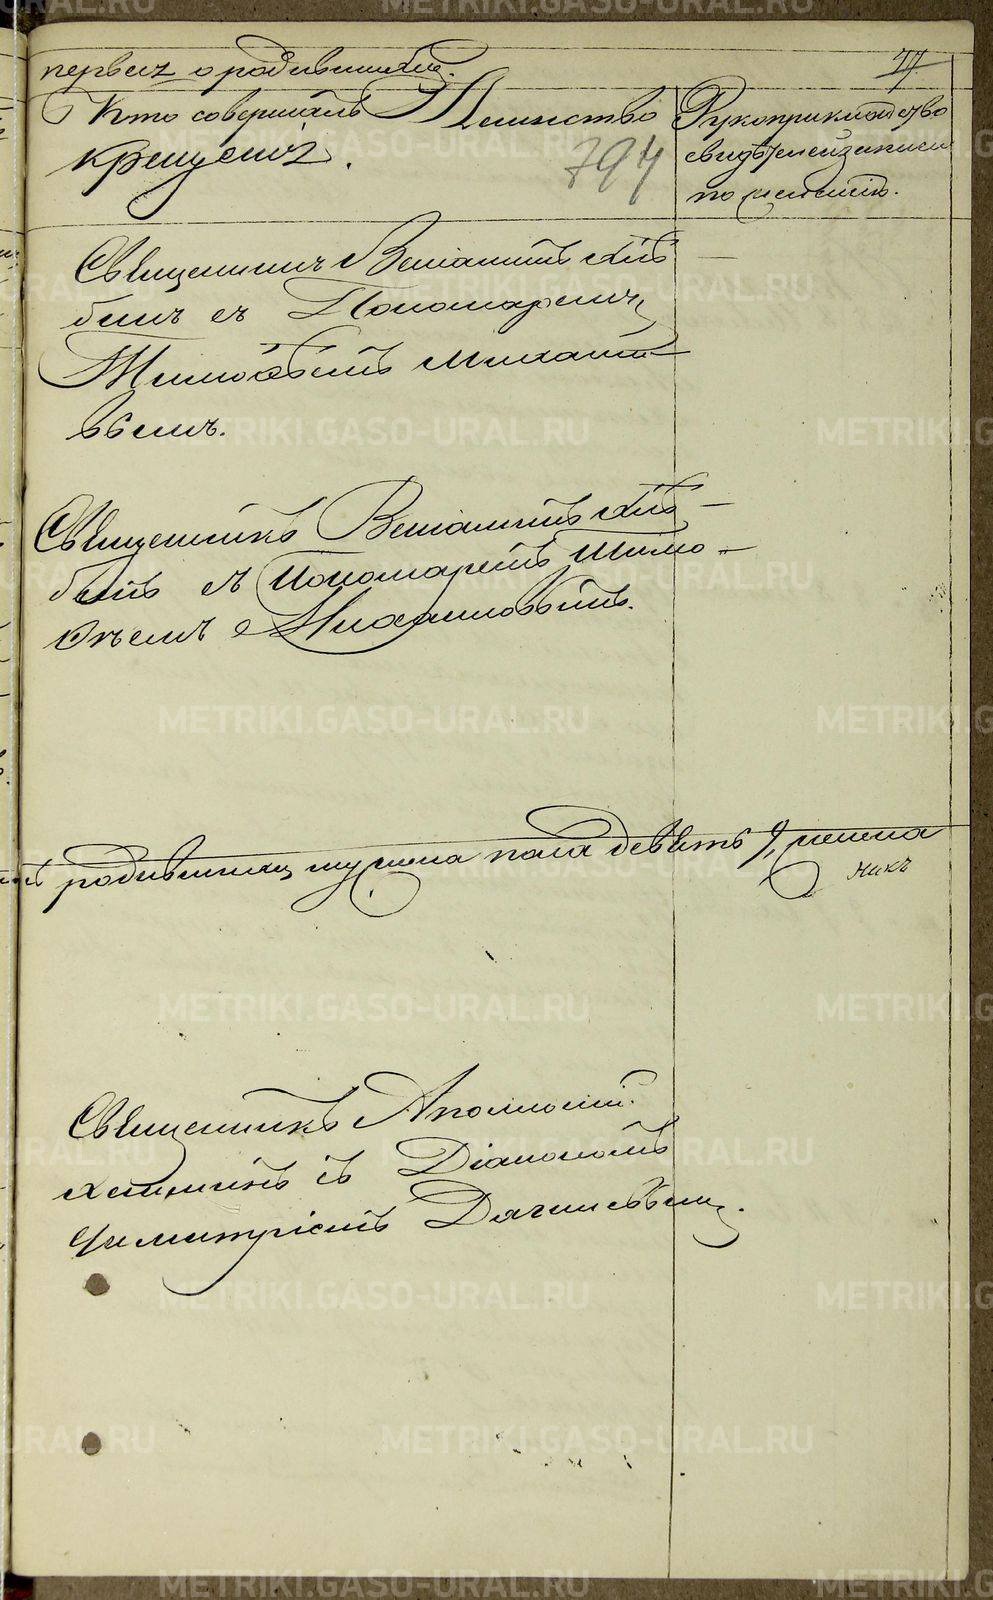 первая о родившихся.
77
Кто совершалъ Таинство
крещенія.
794
Рукоприкладство
свидѣтелей записи
по желанію.
Священникъ Веніаминъ
съ Пономаремъ
Тимоѳеемъ Михаил
вымъ.
Священникъ Веніаминъ
съ Пономаремъ Тимо-
ѳеемъ Михаиловымъ.
родившихся мужеска пола девять 9, женска
Священникъ Аполлоній
съ Діакономъ
Димитріемъ
METRIKI.GASO-URAL.RU